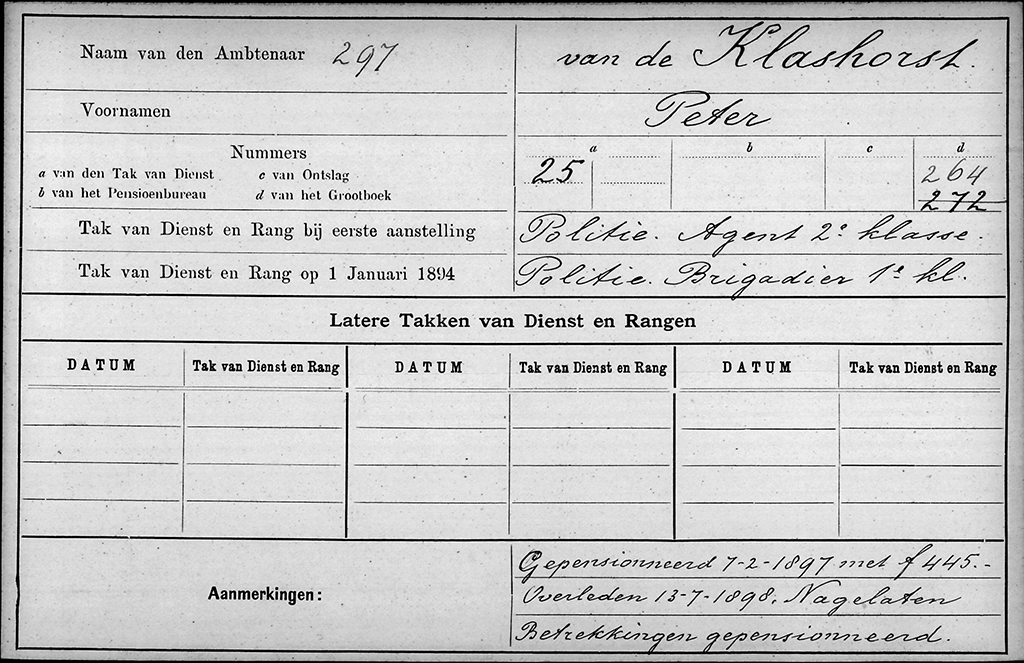 Naam van den Ambtenaar 297 van de Klashorst.
Voornamen Peter
Nummers
a b c d
a van den Tak van Dienst c van Ontslag 25 264
b van het Pensioenbureau d van het Grootboek 272
Tak van Dienst en Rang bij eerste aanstelling Politie. Agent 2e klasse.
Tak van Dienst en Rang op 1 Januari 1894 Politie. Brigadier 1e kl.
Latere Takken van Dienst en Rangen
DATUM Tak van Dienst en Rang DATUM Tak van Dienst en Rang DATUM Tak van Dienst en Rang
Aanmerkingen:
Gepensionneerd 7-2-1897 met f 445.-
Overleden 13-7-1898. Nagelaten
Betrekkingen gepensionneerd.